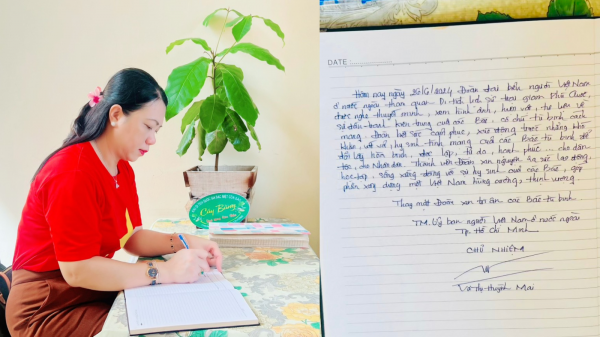 Cây Bàng
DATE
Hôm nay ngày 26/6/2024 Đoàn đại biểu người Việt Nam
ở nước ngoài tham quan Di tích lịch sử trại giam Phú Quốc,
được nghe thuyết minh, xem hình ảnh, hiện vật, tư liệu về
sự đấu tranh kiên trung của các Bác, cô chú tù binh cách
mạng, đoàn hết sức cảm phục, xúc động trước những khó
khăn, vất vả, hy sinh tính mạng của các Bác tù binh để
đổi lấy hòa bình, độc lập, tự do, hạnh phúc ... cho dân
tộc, cho Nhân dân. Thành viên đoàn xin nguyện ra sức lao động,
học tập sống xứng đáng với sự hy sinh của các Bác, góp
phần xây dựng một Việt Nam hùng cường, thịnh vượng.
Thay mặt Đoàn xin tri ân các Bác tù binh
TM. Uỷ ban người Việt Nam ở nước ngoài
Tp. Hồ Chí Minh
CHỦ NHIỆM
Võ Thị Huỳnh Mai